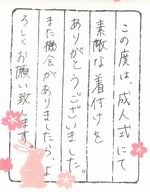 この度は、成人式にて
素敵な着付けを
ありがとうございました。
また機会がありましたら、よ
ろしくお願い致します。